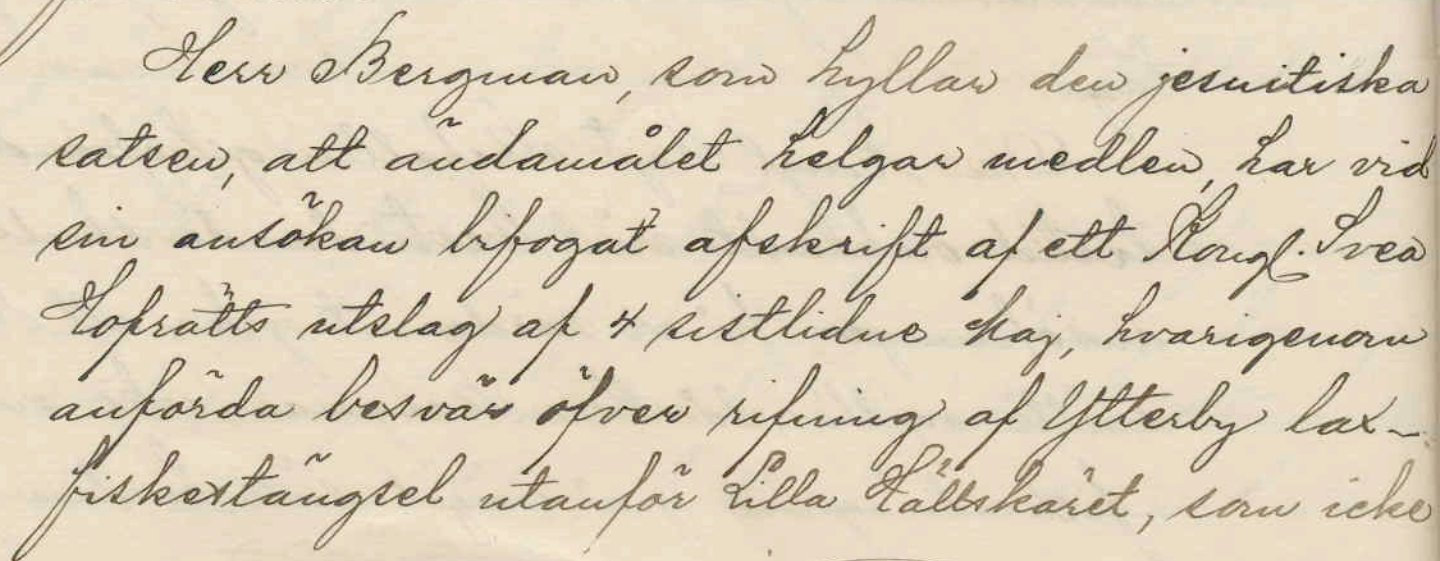 Herr Bergman, som hyllar den jesuitiska
satsen, att ändamålet helgar medlen, har vid
sin ansökan bifogat afskrift af ett Kongl. Svea
Hofrätts utslag af 4 sistlidne Maj, hvarigenom
anförda besvär öfver rifning af Ytterby lax-
fiskestängsel utanför Lilla Hällskäret, som icke